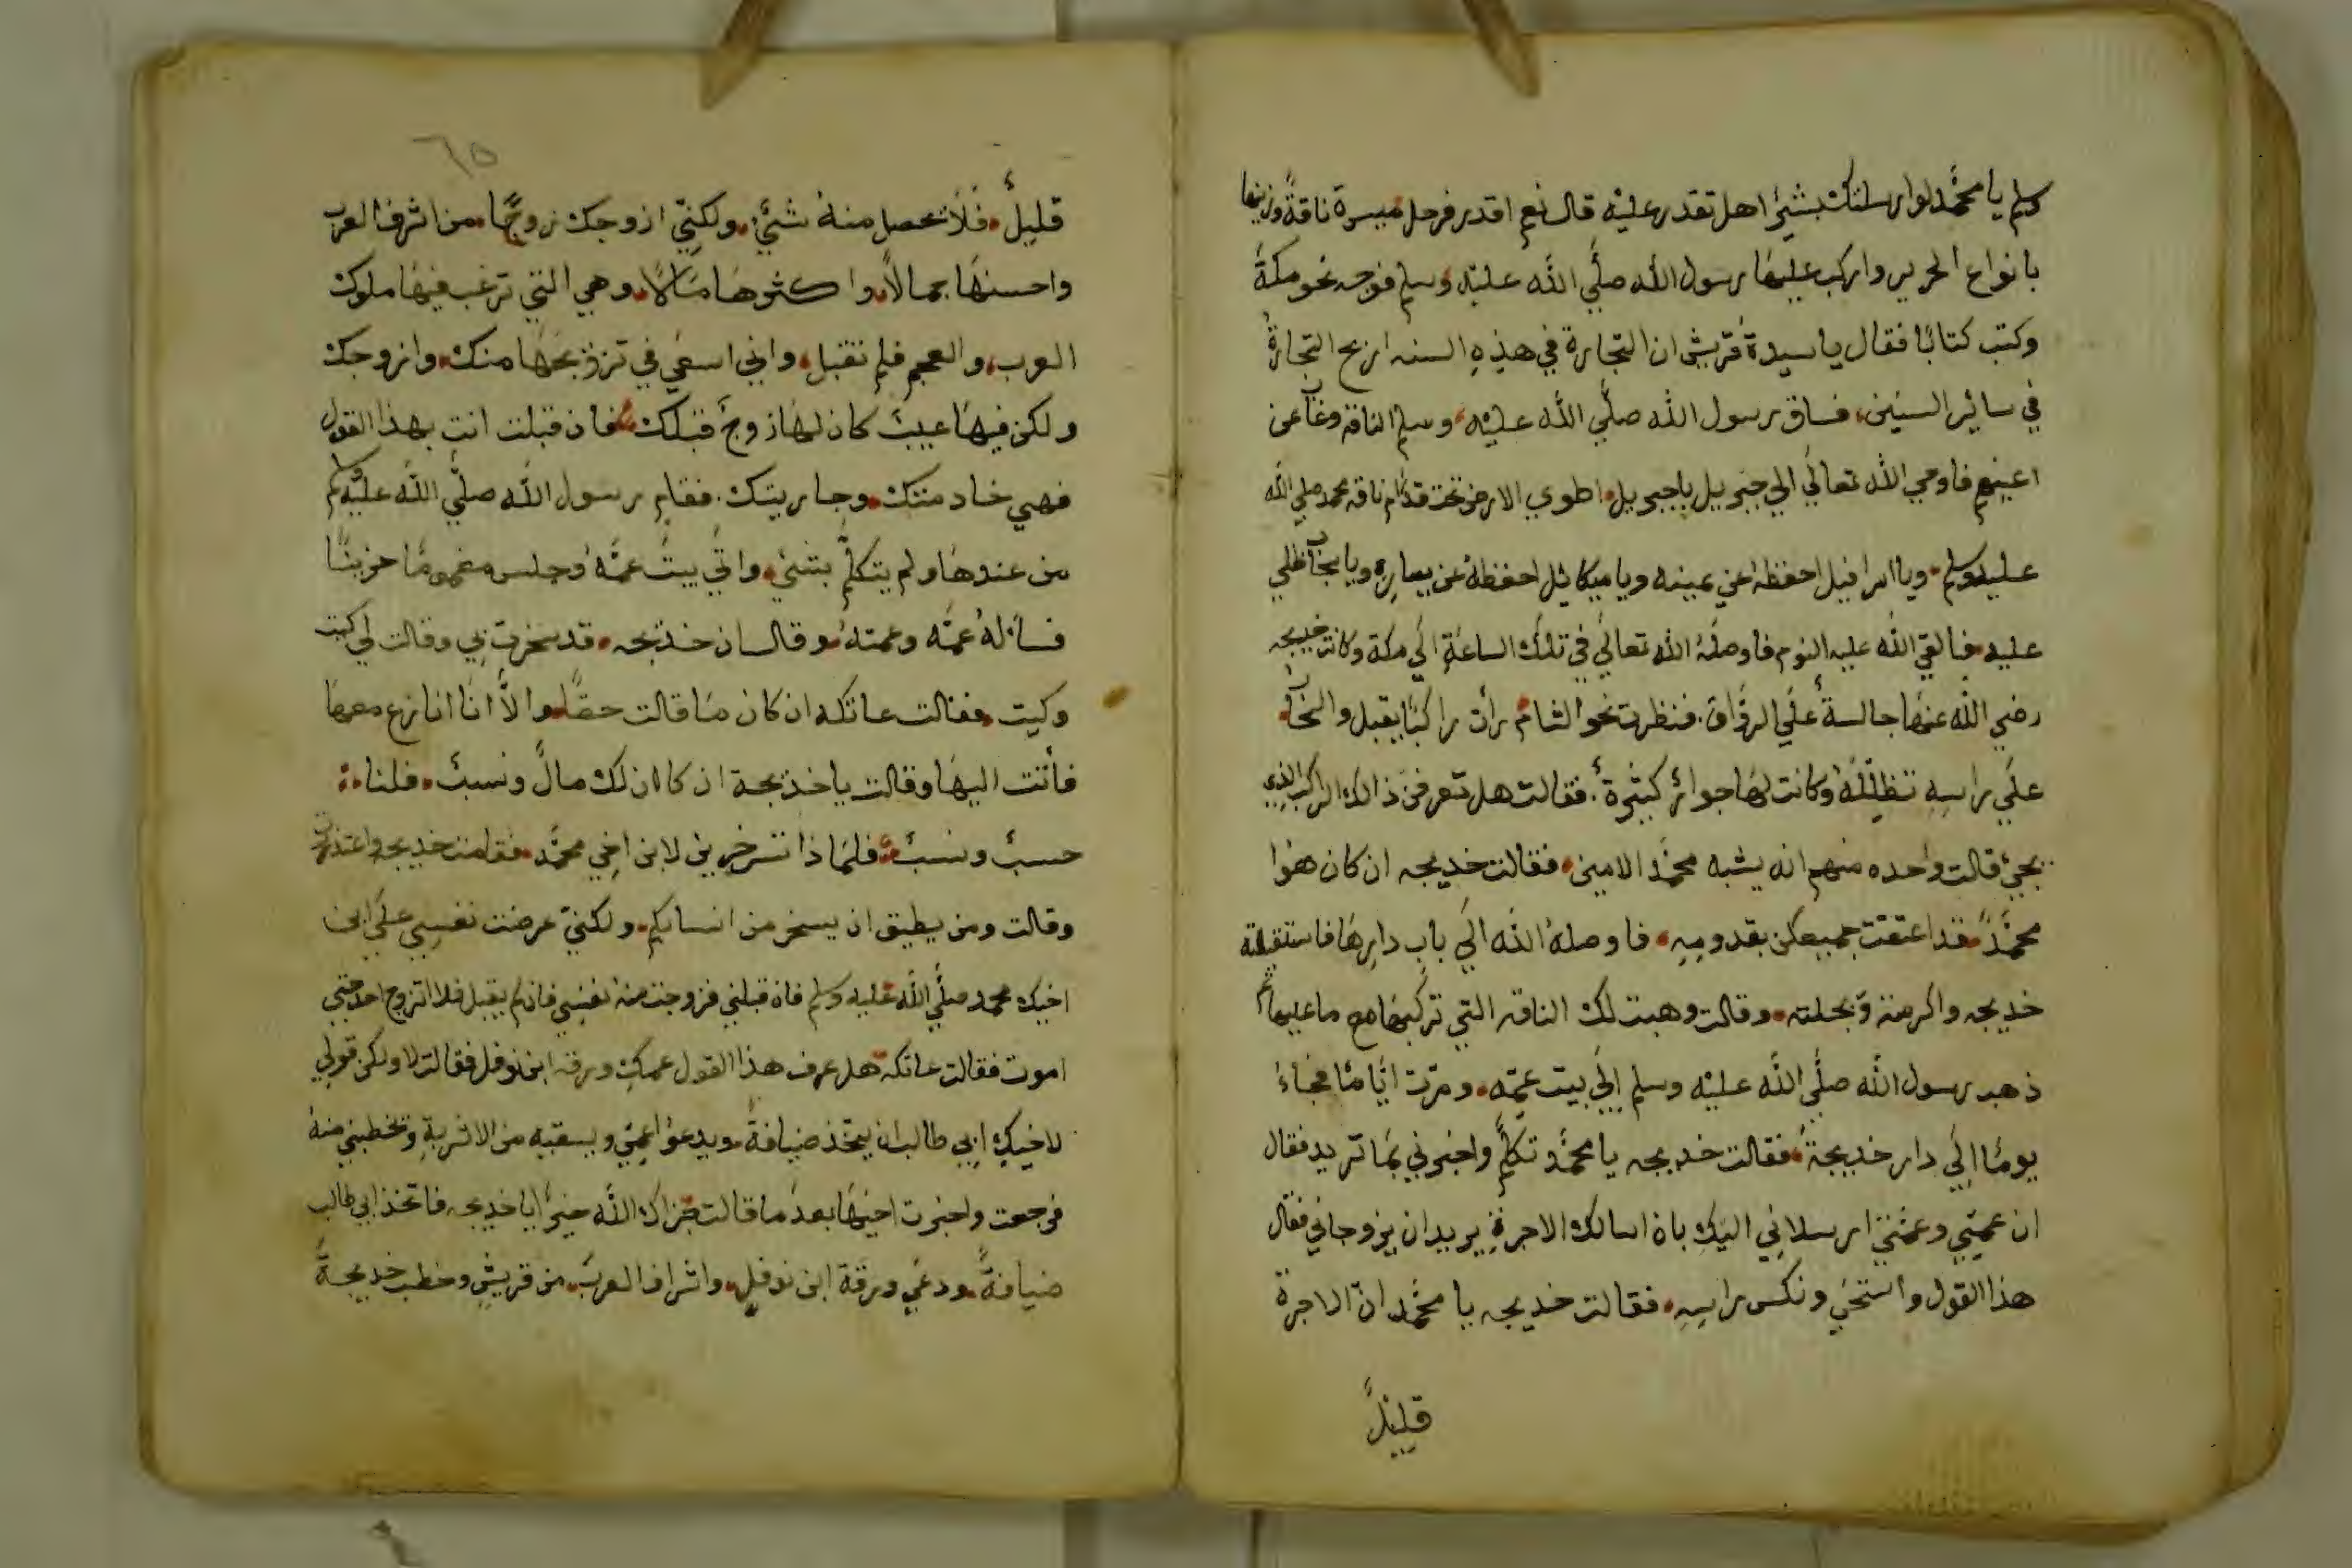 وسلم يا محمد لو ارسلتك بشئ اهل تقدر عليه قال نعم اقدر فرحل ميسرة ناقة وزينها
بانواع الحرير واركب عليها رسول الله صلى الله عليه وسلم فوجه نحو مكة
وكتب كتابًا فقال يا سيدة قريش ان التجارة في هذه السنه اربح التجارة
في سائر السنين، فساق رسول الله صلى الله عليه وسلم الناقه وغاب عن
اعينهم فاوحي الله تعالي الي جبريل يا جبريل اطوي الارض تحت قدام ناقة محمد صلي الله
عليه وسلم وياا سرافيل احفظه عن يمينه ويا ميكائيل احفظه عن يساره ويا سحاب ظلي
عليه فالقي الله عليه النوم فاوصله الله تعالي في تلك الساعة الي مكة وكانت خديجه
رضي الله عنها جالسة علي الرواق فنظرت نحو الشام رات راكبًا يقبل والسحاب
علي راسه تظلله وكانت لها جوائر كثيرة فقالت هل تعرفن ذالك الراكب الذي
يجئ قالت واحده منهم انه يشبه محمد الامين فقالت خديجه ان كان هوا
محمدً قد اعتقت جميعكن بقدومه فاوصله الله الي باب دارها فاستقبلته
خديجه واكرمته وبجلته وقالت وهبت لك الناقه التي تركبها مع ما عليها ثم
ذهب رسول الله صلى الله عليه وسلم الي بيت عمه ومرت ايامًا فجاء
يومًا الي دار خديجة فقالت خديجه يا محمد تكلم واخبرني بما تريد فقال
ان عمي وعمتي ارسلاني اليك بان اسالك الاجرة يريدان يزوجاني فقال
هذا القول واستحي ونكس راسه فقالت خديجه يا محمد ان الاجرة
قليل
٦٥
قليل فلا تحصل منه شئ ولكني ازوجك زوجًا من اشرف العرب
واحسنها جمالا واكثرها مالا وهي التي ترغب فيها ملوك
العرب والعجم فلم تقبل واني اسعي في تزويجها منك وازوجك
ولكن فيها عيب كان لها زوج قبلك فان قبلت انت بهذا القول
فهي خادمتك وجاريتك فقام رسول الله صلى الله عليه وسلم
من عندها ولم يتكلم بشئ واتي بيت عمه وجلس مغمومًا حزينًا
فساله عمه وعمته وقال ان خديجه قد سخرت بي وقالت لي كيت
وكيت فقالت عاتكه ان كان ما قالت حقا والا انا انازع معها
فأتت اليها وقالت يا خديجة ان كان لك مال ونسب فلنا
حسب ونسب فلماذا تسخرين لابن اخي محمد فقامت خديجه واعتذرت
وقالت ومن يطيق ان يسخر من انسابكم ولكني عرضت نفسي علي ابن
اخيك محمد صلى الله عليه وسلم فان قبلني فزوجت منه نفسي فان لم يقبل فلا اتزوج احد حتي
اموت فقالت عاتكه هل عرف هذا القول عمك ورقه ابن نوفل فقالت لا ولكن قولي
لاخيك ابي طالب ان يتخذ ضيافة ويدعوا عمي ويسقيه من الاشربة وتخطبني منه
فرجعت واخبرت اخيها بعد ما قالت جزاك الله خيرًا يا خديجه فاتخذ ابي طالب
ضيافةً ودعي ورقة ابن نوفل واشراف العرب من قريش وخطب خديجة